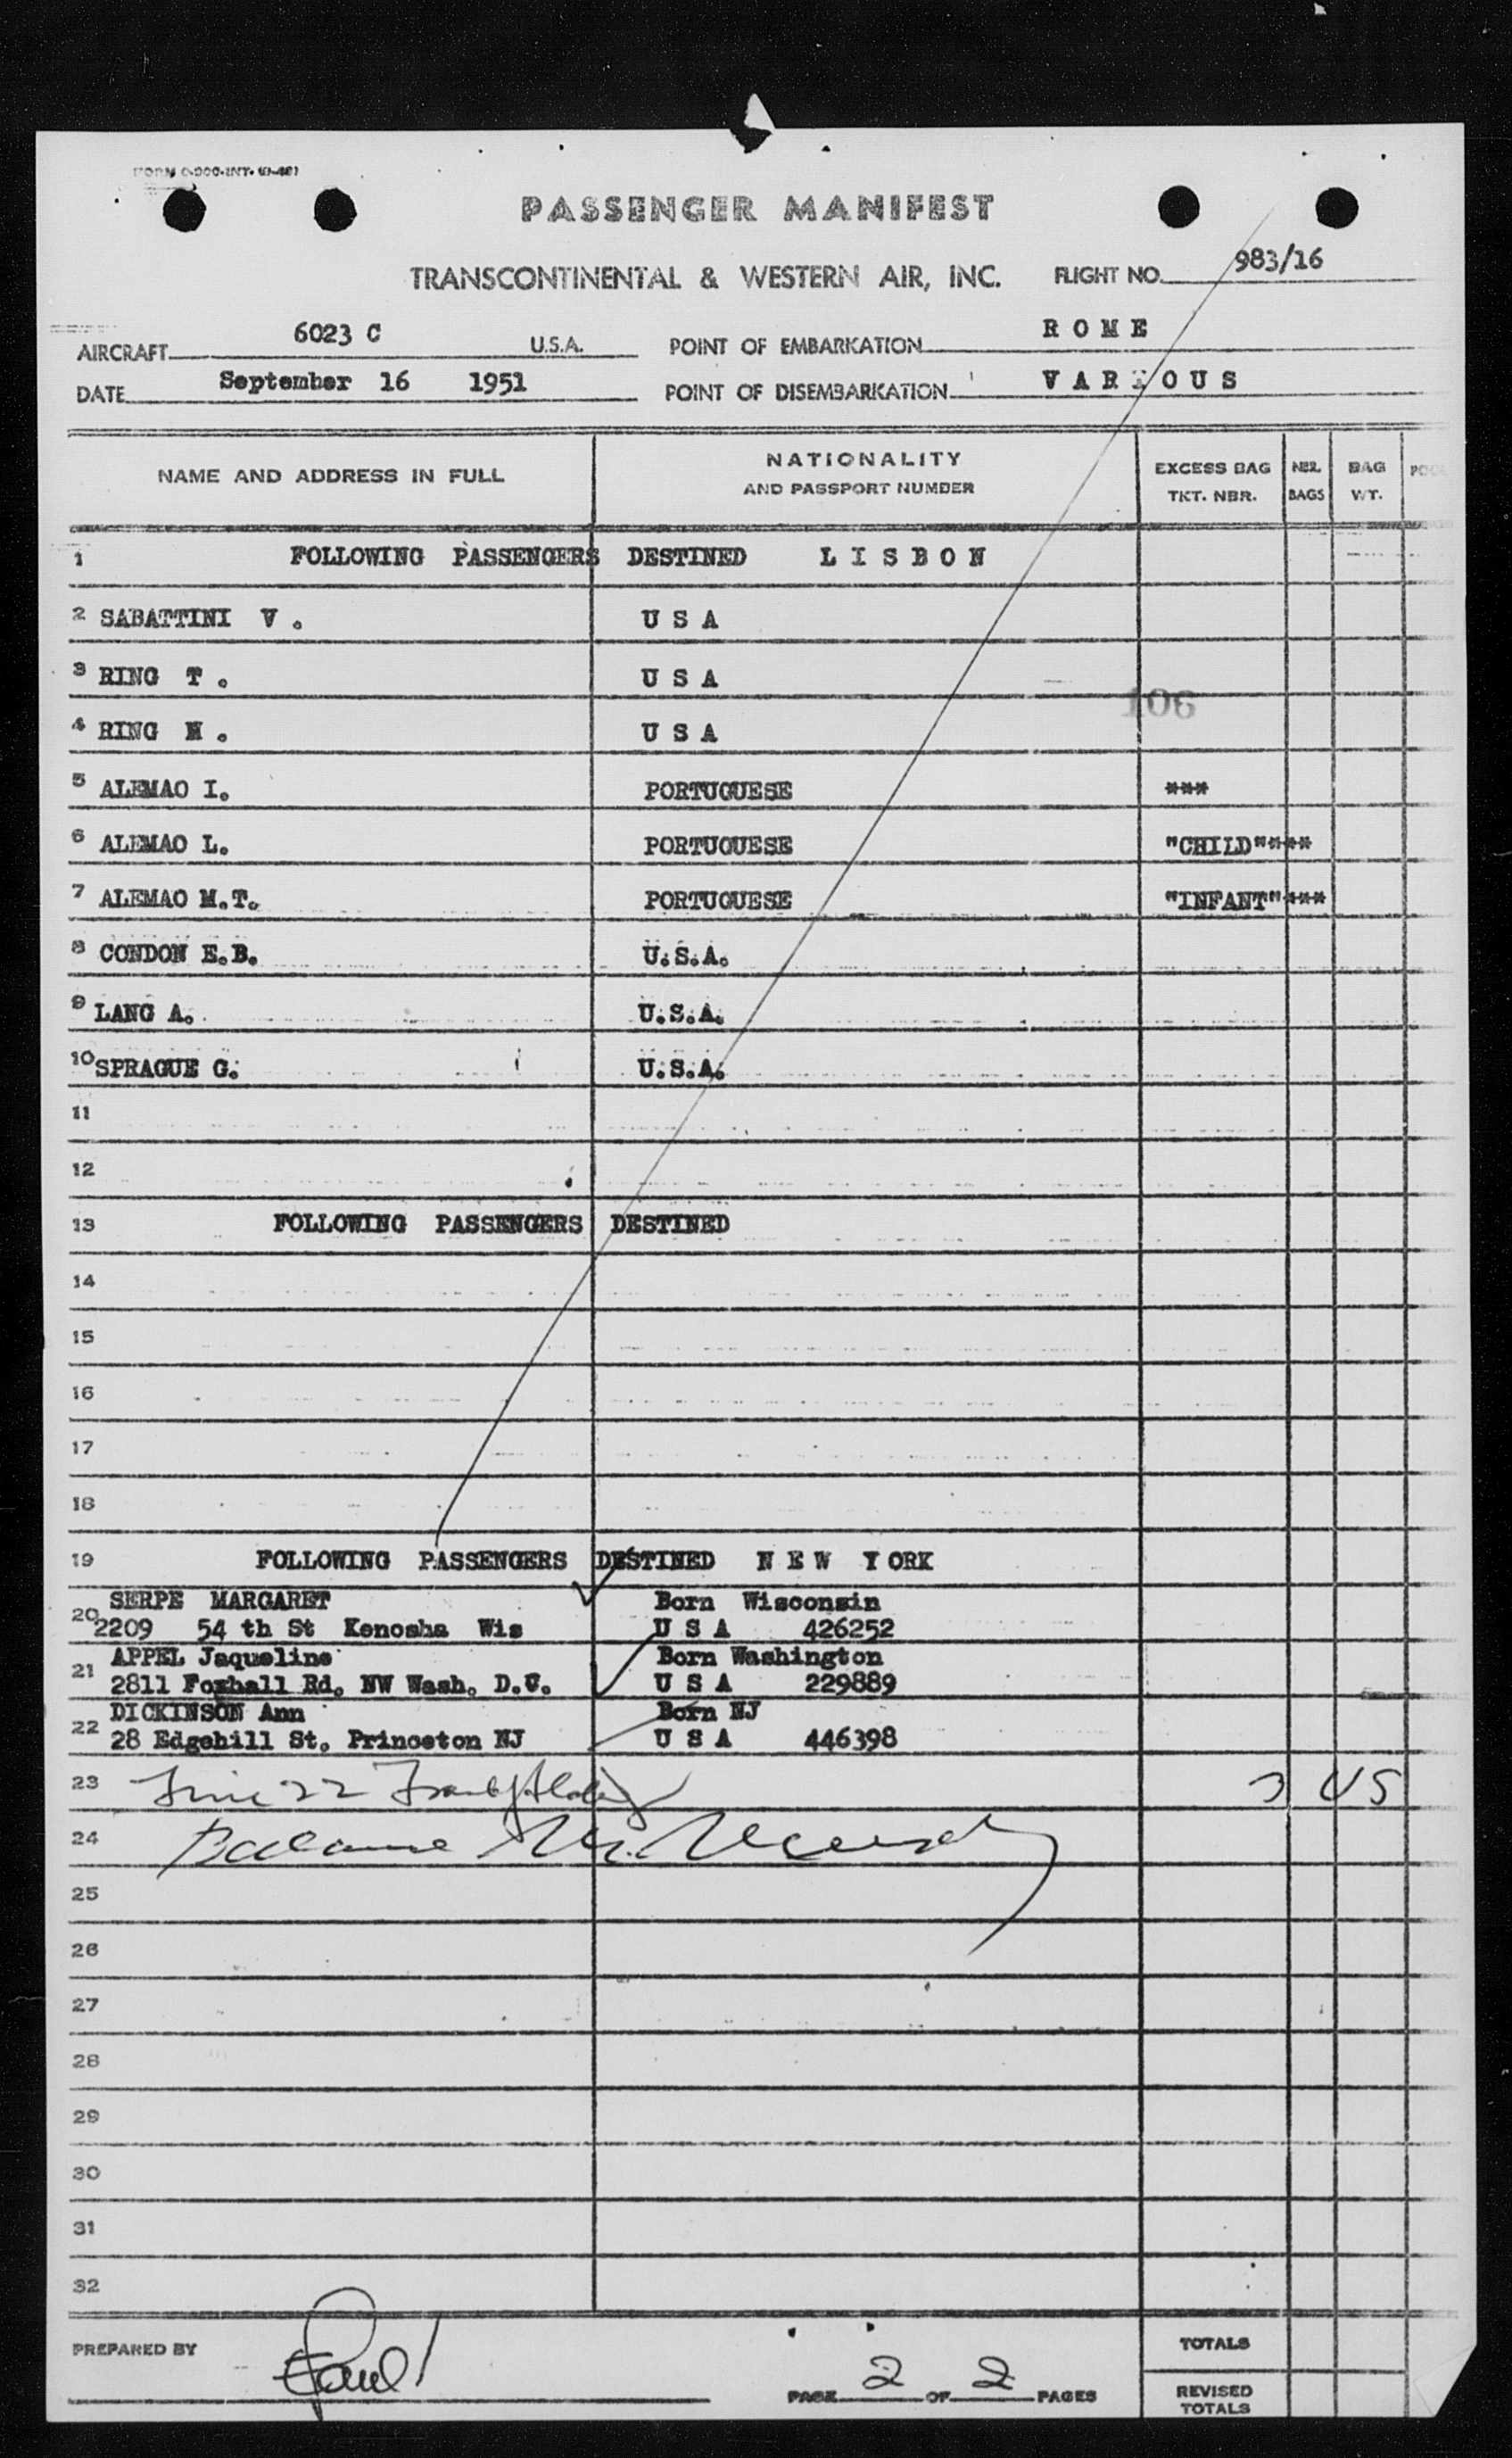 PASSENGER MANIFEST
TRANSCONTINENTAL & WESTERN AIR, INC. FLIGHT NO. 983/16
AIRCRAFT 6023 C U.S.A. POINT OF EMBARKATION R O M E
DATE September 16 1951 POINT OF DISEMBARKATION V A R I O U S
NAME AND ADDRESS IN FULL NATIONALITY AND PASSPORT NUMBER EXCESS BAG TKT. NBR. NBR. BAGS BAG WT.
1 FOLLOWING PASSENGERS DESTINED L I S B O N
2 SABATTINI V. U S A
3 RING T. U S A
106
4 RING M. U S A
5 ALEMAO I. PORTUGUESE ***
6 ALEMAO L. PORTUGUESE "CHILD"***
7 ALEMAO M.T. PORTUGUESE "INFANT"***
8 CONDON E.B. U.S.A.
9 LANG A. U.S.A.
10 SPRAGUE G. U.S.A.
11
12
13 FOLLOWING PASSENGERS DESTINED
14
15
16
17
18
19 FOLLOWING PASSENGERS DESTINED N E W Y ORK
SERPE MARGARET Born Wisconsin
20 2209 54 th St Kenosha Wis U S A 426252
APPEL Jaqueline Born Washington
21 2811 Foxhall Rd. NW Wash. D.C. U S A 229889
DICKINSON Ann Born NJ
22 28 Edgehill St. Princeton NJ U S A 446398
23 Line 22 3 US
24 Balance
25
26
27
28
29
30
31
32
PREPARED BY TOTALS
PAGE 2 OF 2 PAGES REVISED TOTALS